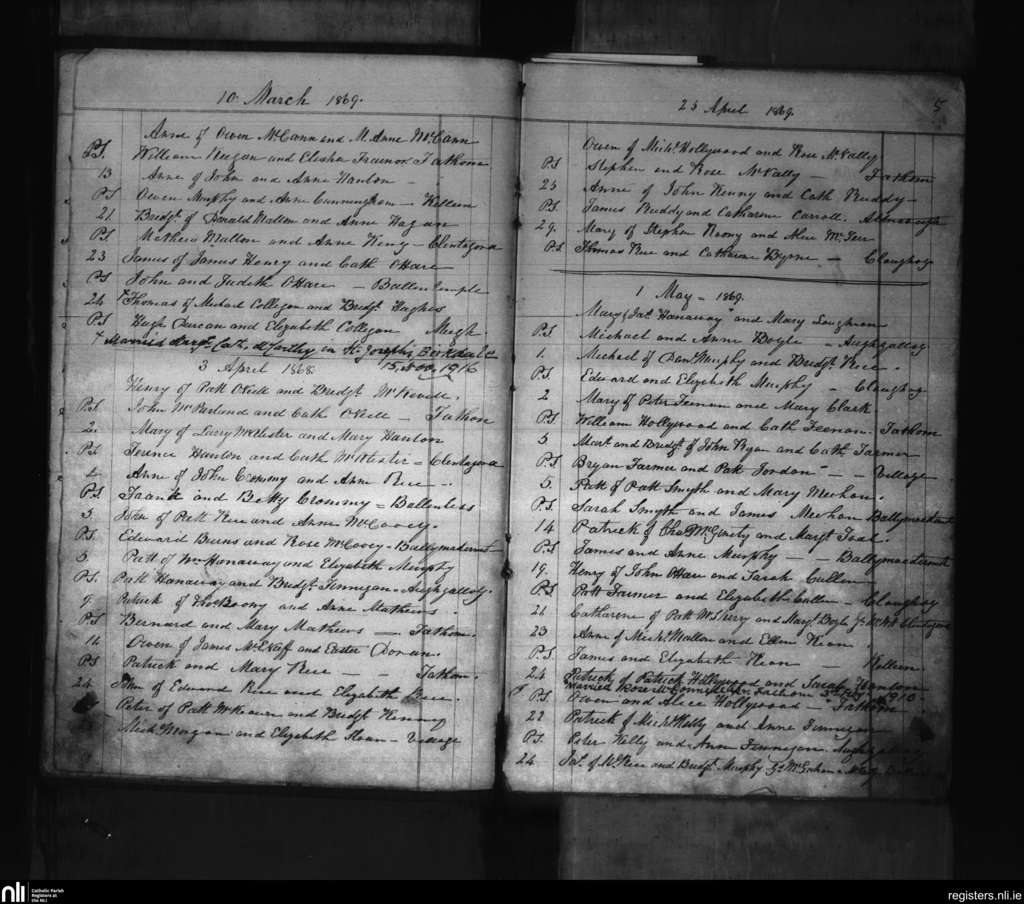 10 March 1869.
Anne of Owen McCann and M. Anne McCann
P.S. William Keegan and Elisha Trainor Fathom
13 Anne of John and Anne Hanlon -
P.S Owen Murphy and Anne Cunningham - Killeen
21 Bridgt. of Mallon and Anne Hagan
P.S. Mathew Mallon and Anne Heny - Clontagora
23 James of James Henry and Cath O'Hare
P.S John and Judith O'Hare -
24 Thomas of Michael Collegan and Bridgt. Hughes
P.S Hugh Duncan and Elizabeth Collegan Meigh.
Married McCarthy in St. Joseph's, Birkdale
15 Nov. 1916
3 April 1868.
Henry of Patt O'Neill and Bridgt McKevitt.
P.S. John McParland and Cath O'Neill - Fathom
2. Mary of Larry McAlester and Mary Hanlon
P.S. Terence Hanlon and Cath McAlester = Clontagora
Anne of John Crommy and Anne Rice -
P.S. Frank and Betty Crommy =
3. John of Patt Rice and Anne McCovey.
P.S. Edward Burns and Rose McCovey = Ballymacdermot
5 Patt of Wm Hanaway and Elizabeth Murphy
P.S. Patt Hanaway and Bridgt. Finnegan - Aughgallog.
9. Patrick of Thos Roony and Anne Mathews
P.S Bernard and Mary Mathews = Fathom
14 Owen of James and Easter Donan.
P.S Patrick and Mary Rice - Fathom.
24 John of Edward Rice and Elizabeth Rice.
Peter of Patt McKeown and Bridgt Kenny
Mick and Elizabeth Sloan - Village
5
25 April 1869.
Owen of Michl. Hollywood and Rose McNally
P.S Stephen and Rose McNally - Fathom
25 Anne of John Kenny and Cath Ruddy -
P.S. James Ruddy and Catharine Carroll.
29. Mary of Stephen Roony and Alice
P.S Thomas Rice and Catharine Byrne - Cloughog
1 May - 1869.
Mary of Jas. Hanaway and Mary Loughran
P.S Michael and Anne Boyle - Aughgallog
1. Michael of Danl. Murphy and Bridgt. Rice.
P.S. Edward and Elizabeth Murphy - Cloughog
2 Mary of Peter Feenan and Mary Clark
P.S. William Hollywood and Cath Feenan. Fathom
5 and Bridgt. of John Ryan and Cath Farmer
P.S. Bryan Farmer and Patt Jordan - Village
5. Patt of Patt Smyth and Mary Meehan.
P.S. Sarah Smyth and James Meehan Ballymacdermot
14 Patrick of Chas. McGinity and Margt Toal.
P.S James and Anne Murphy - Ballymacdermot
19. Henry of John O'Hare and Sarah Cullen
P.S Patt Farmer and Elizabeth Cullen - Cloughog
21 Catharine of Patt McSherry and Mary Boyle Clontagora
23 Anne of Michl. Mallon and Ellen Keon
P.S. James and Elizabeth Keon - Killeen
24 Patrick of Patrick Hollywood and Sarah Hanlon
married Rose McConville Fathom 1910
P.S. Owen and Alice Hollywood - Fathom
22 Patrick of Michl Kelly and Anne Finnegan
P.S. Peter Kelly and Anne Finnegan
24 Jas. of Rice and Bridgt. Murphy
nli Catholic Parish Registers at the NLI
registers.nli.ie